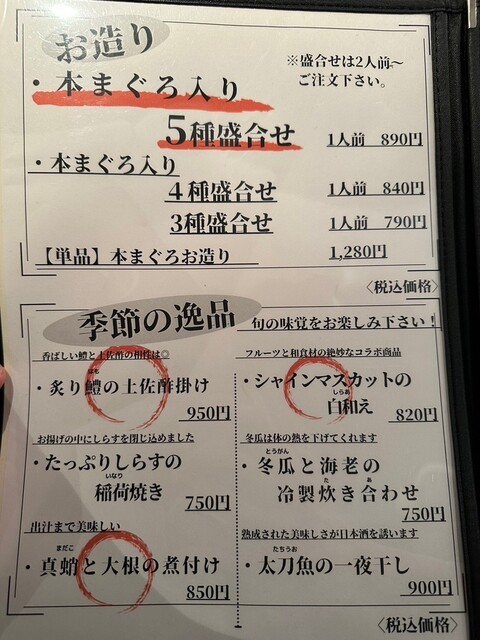 お造り
※盛合せは2人前〜
ご注文下さい。
・本まぐろ入り
5種盛合せ 1人前 890円
・本まぐろ入り
4種盛合せ 1人前 840円
3種盛合せ 1人前 790円
【単品】本まぐろお造り 1,280円
〈税込価格〉
季節の逸品 旬の味覚をお楽しみ下さい!
香ばしい鱧と土佐酢の相性は◎
はも
・炙り鱧の土佐酢掛け
950円
お揚げの中にしらすを閉じ込めました
・たっぷりしらすの
いなり
稲荷焼き
750円
出汁まで美味しい
まだこ
・真蛸と大根の煮付け
850円
フルーツと和食材の絶妙なコラボ商品
・シャインマスカットの
しらあ
白和え
820円
冬瓜は体の熱を下げてくれます
とうがん
・冬瓜と海老の
た あ
冷製炊き合わせ
750円
熟成された美味しさが日本酒を誘います
たちうお
・太刀魚の一夜干し
900円
〈税込価格〉